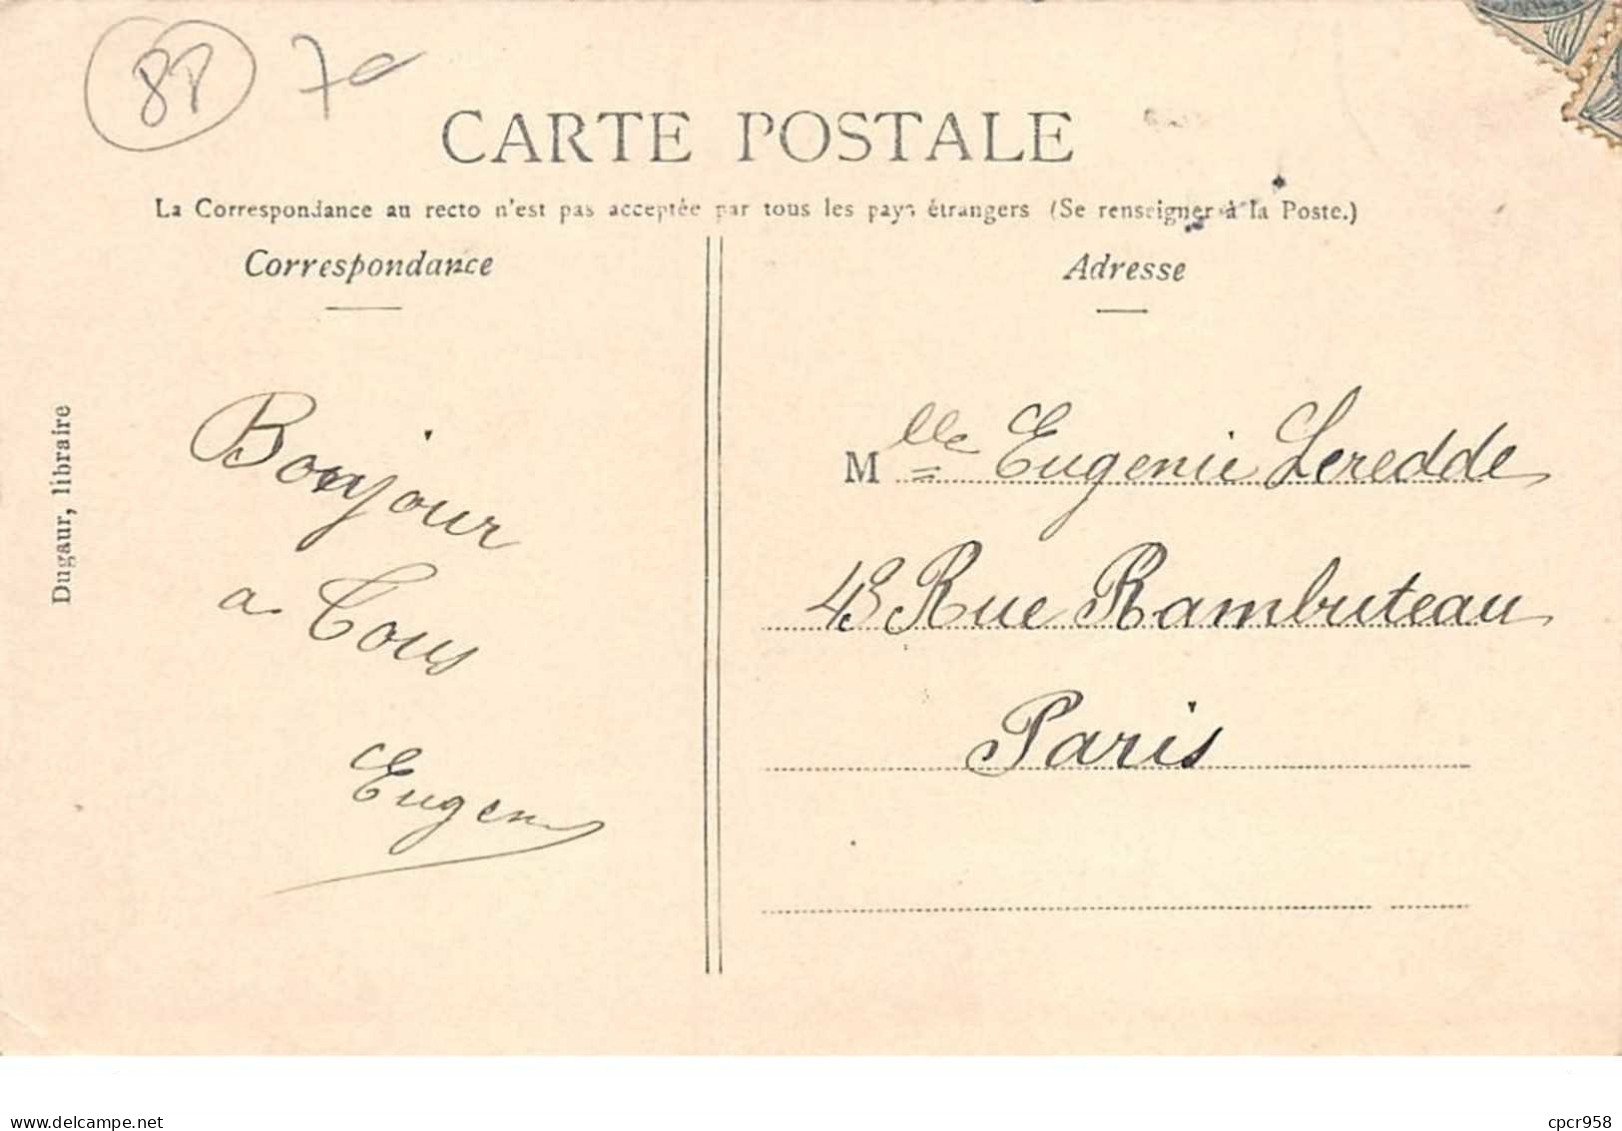 8P 70
CARTE POSTALE
La Correspondance au recto n'est pas acceptée par tous les pays étrangers (Se renseigner à la Poste.)
Correspondance
Adresse
Dugaur, libraire
Bonjour
a Tous
Eugen
Mlle Eugenie Leredde
43 Rue Rambuteau
Paris
www.delcampe.net
cpcr958